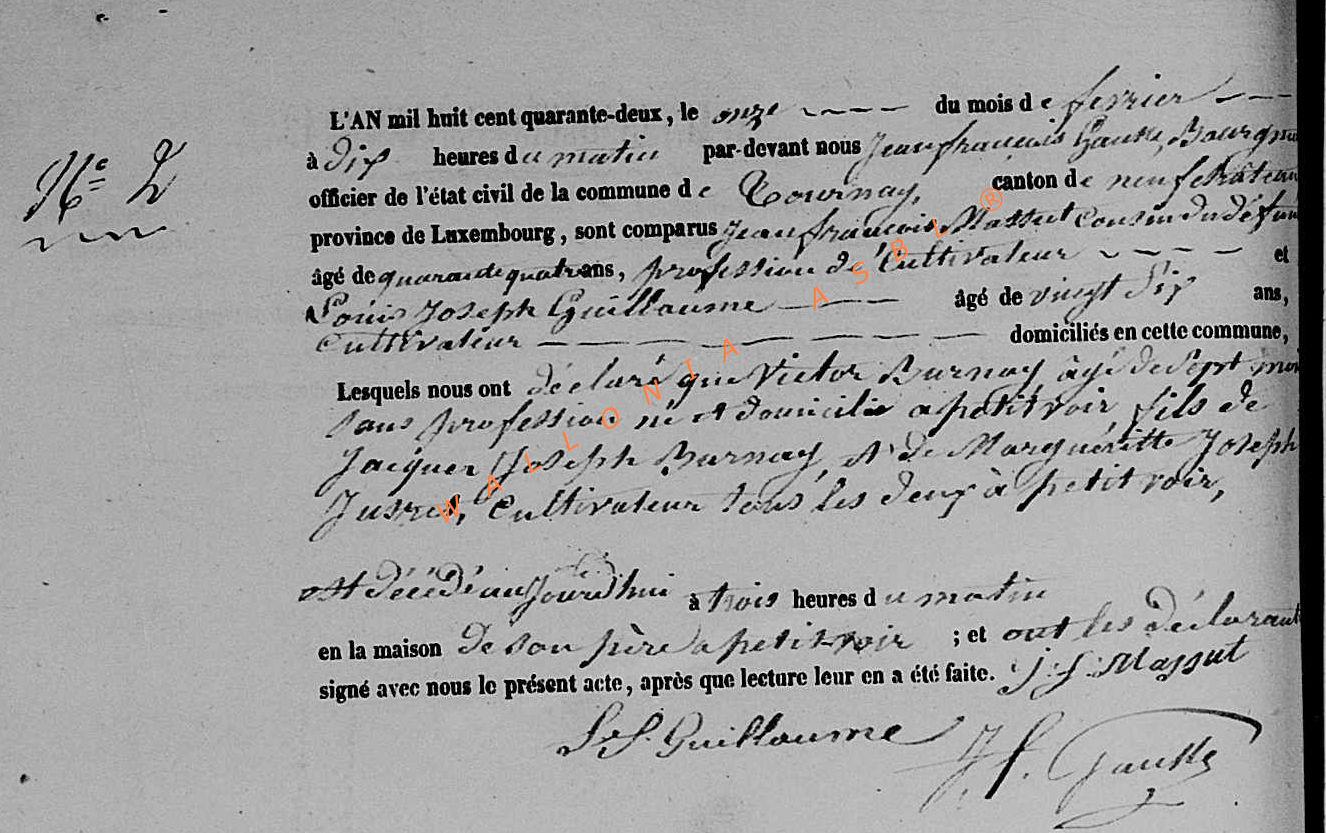 N° 2
L'AN mil huit cent quarante-deux, le onze du mois de fevrier
à dix heures du matin par-devant nous Jean françois Bourgm
officier de l'état civil de la commune de Tournay, canton de neufchâteau
province de Luxembourg, sont comparus Jean françois Massut Cousin du défun
âgé de quarante quatre ans, profession de Cultivateur et
Louis Joseph Guillaume âgé de vingt dix ans,
Cultivateur domiciliés en cette commune,
Lesquels nous ont déclaré que Victor Burnay âgé de Sept moi
sans profession né et domicilié a petitvoir fils de
Jacques Joseph Burnay, et de Marguéritte Joseph
cultivateur tous les deux à petitvoir,
est décédé aujourd'hui à trois heures du matin
en la maison de son père a petitvoir ; et ont les déclarant
signé avec nous le présent acte, après que lecture leur en a été faite. J. f. Massut
L. J. Guillaume J. f.
WALLONIA ASBL ®